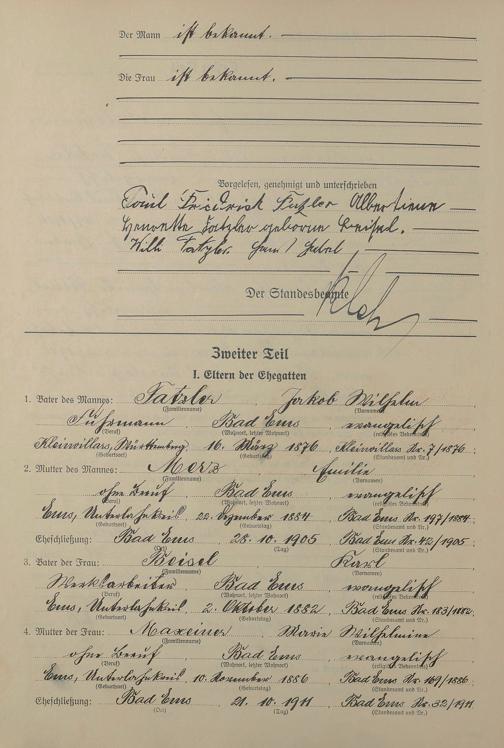 Der Mann ist bekannt.
Die Frau ist bekannt.
Vorgelesen, genehmigt und unterschrieben
Friedrich Fatzler Albertiene
Henrette Fatzler geborene Beisel.
Willi Fatzler.
Der Standesbeamte
Zweiter Teil
I. Eltern der Ehegatten
1. Vater des Mannes: Fatzler Jakob Wilhelm
(Familienname) (Vornamen)
Fuhrmann Bad Ems evangelisch
(Beruf) (Wohnort, letzter Wohnort)
Kleinvillars, Württemberg 16. März 1876 Kleinvillars Nr. 7/1876
(Geburtsort) (Geburtstag) (Standesamt und Nr.)
2. Mutter des Mannes: Merz Emilie
(Familienname) (Vornamen)
ohne Beruf Bad Ems evangelisch
(Beruf) (Wohnort, letzter Wohnort)
Ems, Unterlahnkreis 22. Dezember 1884 Bad Ems Nr. 197/1884
(Geburtsort) (Geburtstag) (Standesamt und Nr.)
Eheschließung: Bad Ems 28. 10. 1905 Bad Ems Nr. 42/1905
(Ort) (Tag) (Standesamt und Nr.)
3. Vater der Frau: Beisel Karl
(Familienname) (Vornamen)
Werkarbeiter Bad Ems evangelisch
(Beruf) (Wohnort, letzter Wohnort)
Ems, Unterlahnkreis 2. Oktober 1882 Bad Ems Nr. 183/1882
(Geburtsort) (Geburtstag) (Standesamt und Nr.)
4. Mutter der Frau: Maxeiner Marie Wilhelmine
(Familienname) (Vornamen)
ohne Beruf Bad Ems evangelisch
(Beruf) (Wohnort, letzter Wohnort)
Ems, Unterlahnkreis 10. November 1886 Bad Ems Nr. 169/1886
(Geburtsort) (Geburtstag) (Standesamt und Nr.)
Eheschließung: Bad Ems 21. 10. 1911 Bad Ems Nr. 32/1911
(Ort) (Tag) (Standesamt und Nr.)